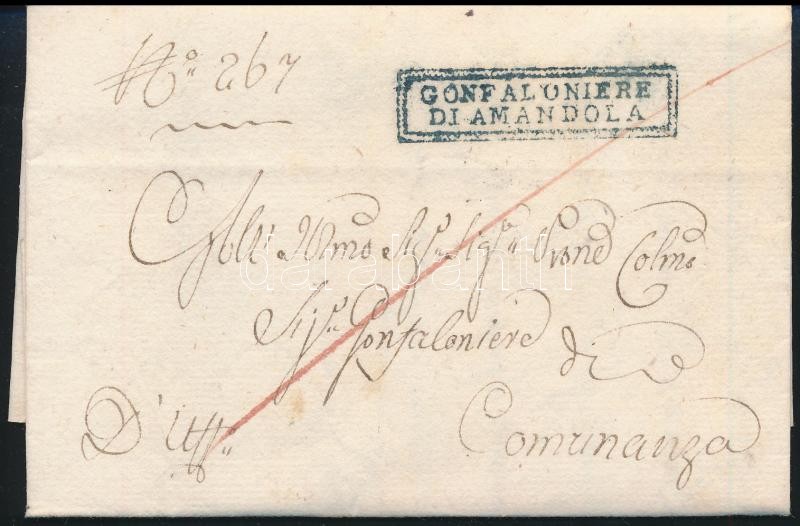 Nº. 267
GONFALONIERE
DI AMANDOLA
All' Illmo Sigr. Sigr. Prone Colmo
Sigr. Gonfaloniere di
D'Uffo. Comunanza
darabanth